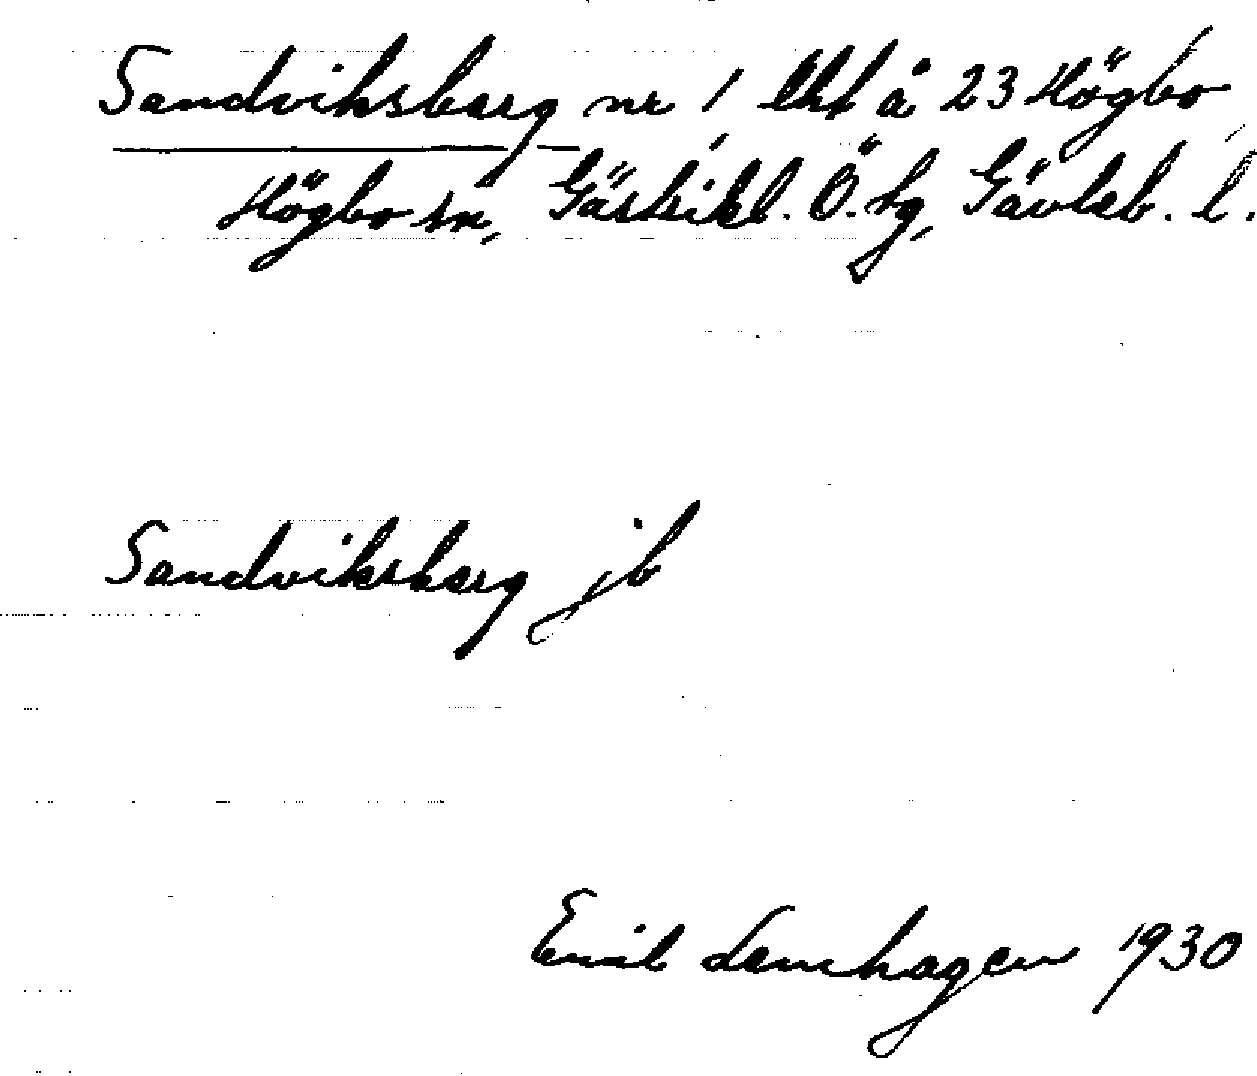 Sandviksberg nr 1 lht å 23 Högbo
Högbo sn, Gästrikl. Ö. tg, Gävleb. l.
Sandviksberg jb
Emil Lemhagen 1930